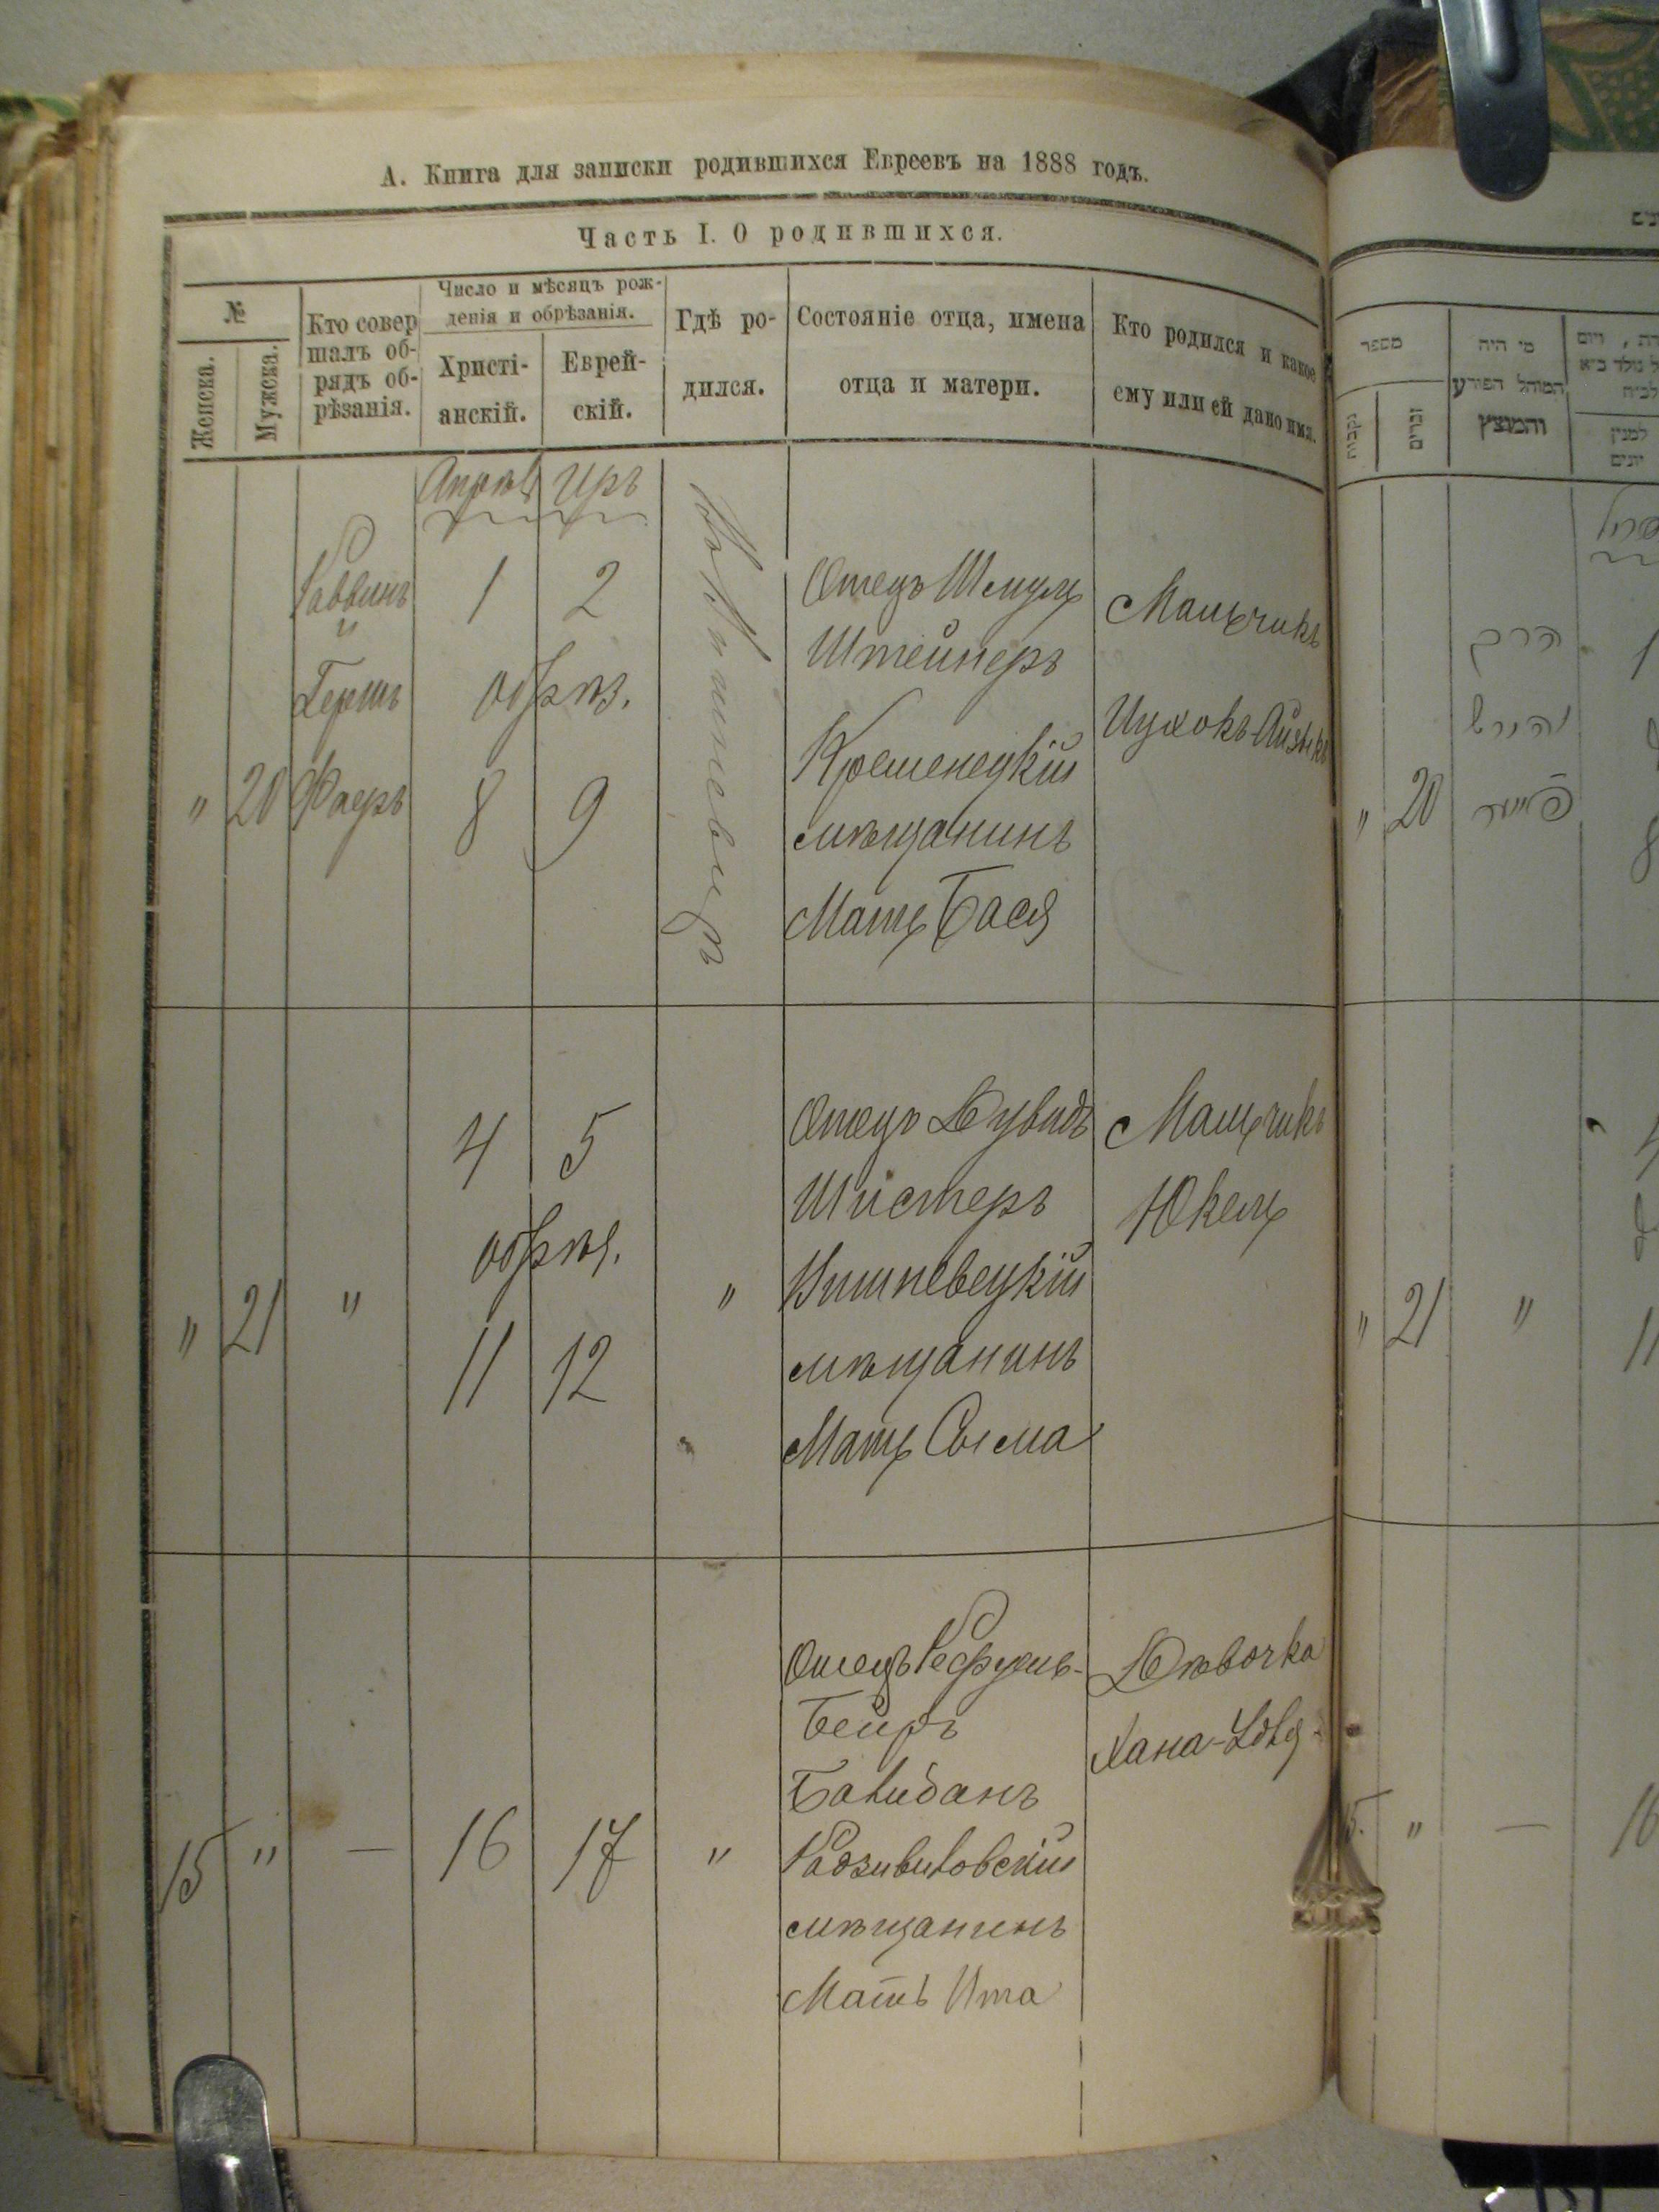 А. Книга для записки родившихся Евреевъ на 1888 годъ.
Часть I. О родившихся.
№
Женска.
Мужска.
Кто совер
шалъ об-
рядъ об-
рѣзанія.
Число и мѣсяцъ рож-
денія и обрѣзанія.
Христі-
анскій.
Еврей-
скій.
Гдѣ ро-
дился.
Состояніе отца, имена
отца и матери.
Кто родился и какое
ему или ей дано имя.
Апрѣль Иръ
" 20
Раввинъ
и
Гершъ
Фаеръ
1 2
обрѣз.
8 9
Отецъ Шмуль
Штейнеръ
Кременецкій
мѣщанинъ
Мать Бася
Мальчикъ
Ицхокъ-Айзикъ
" 21 "
4 5
обрѣз.
11 12
"
Отецъ Дувидъ
Шистеръ
Вишневецкій
мѣщанинъ
Мать Сыма
Мальчикъ
Юкель
15 " — 16 17 "
Отецъ
Бейръ
Радзивиловскій
мѣщанинъ
Мать Ита
Дѣвочка
מספר
נקבות
זכרים
מי היה
המוהל הפורע
והמוצץ
למנין
יונים
" 20
הרב
והירש
פייער
1
8
" 21 "
4
11
15. " — 16